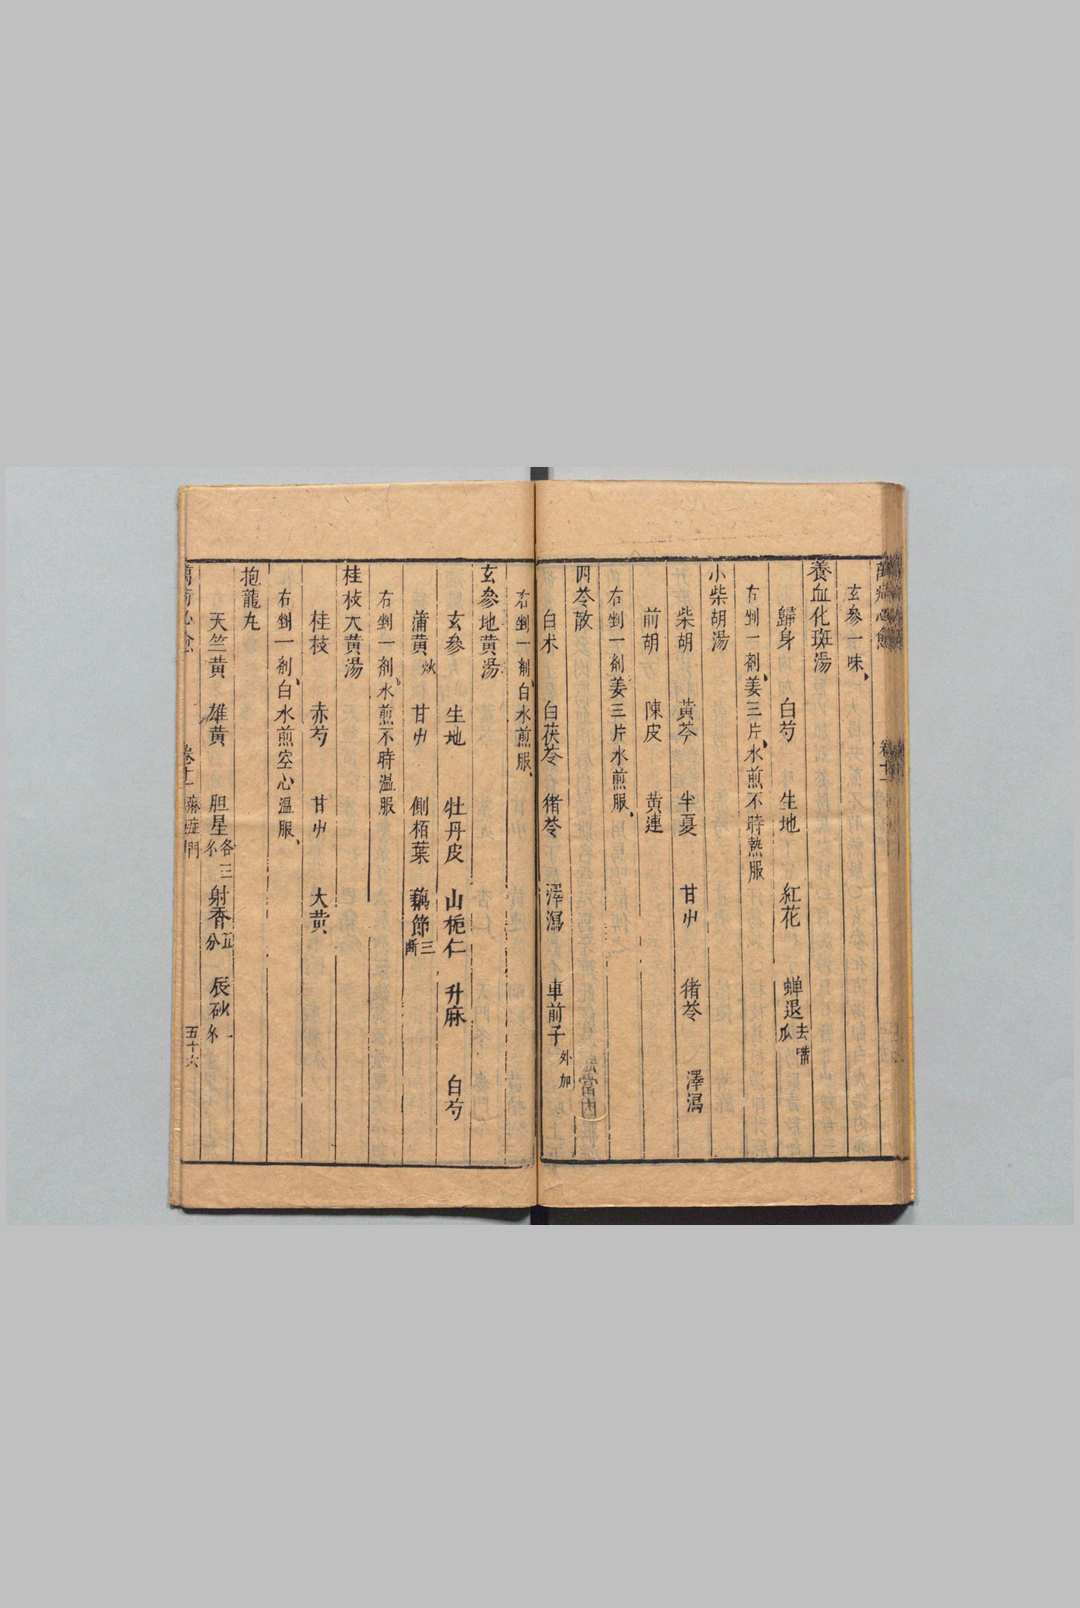 玄參一味、
養血化斑湯
歸身 白芍 生地 紅花 蝉退去嘴瓜
右剉一剤、姜三片、水煎不時熱服
小柴胡湯
柴胡 黄芩 半夏 甘艸 猪苓 澤瀉
前胡 陳皮 黄連
右剉一剤姜三片水煎服、
四苓散
白朮 白茯苓 猪苓 澤瀉 車前子外加
右剉一剤、白水煎服、
玄參地黄湯
玄參 生地 牡丹皮 山梔仁 升麻 白芍
蒲黄炒 甘艸 側栢葉 藕節三断
右剉一剤、水煎不時温服
桂枝大黄湯
桂枝 赤芍 甘艸 大黄
右剉一剤、白水煎空心温服、
抱龍丸
天竺黄 雄黄 胆星各三 射香五分 辰砂一
卷十一
五十六